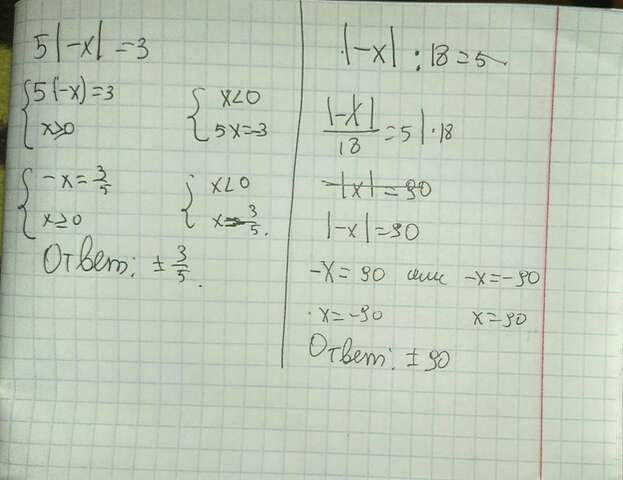 5|-x| = 3
{ 5(-x) = 3
x≥0
{ x<0
5x=-3
{ -x = 3/5
x≥0
{ x<0
x=-3/5.
Ответ: ± 3/5.
|-x| : 18 = 5
|-x|/18 = 5 | · 18
-|x| = 90
|-x| = 90
-x = 90 или -x = -90
x = -90 x = 90
Ответ: ± 90